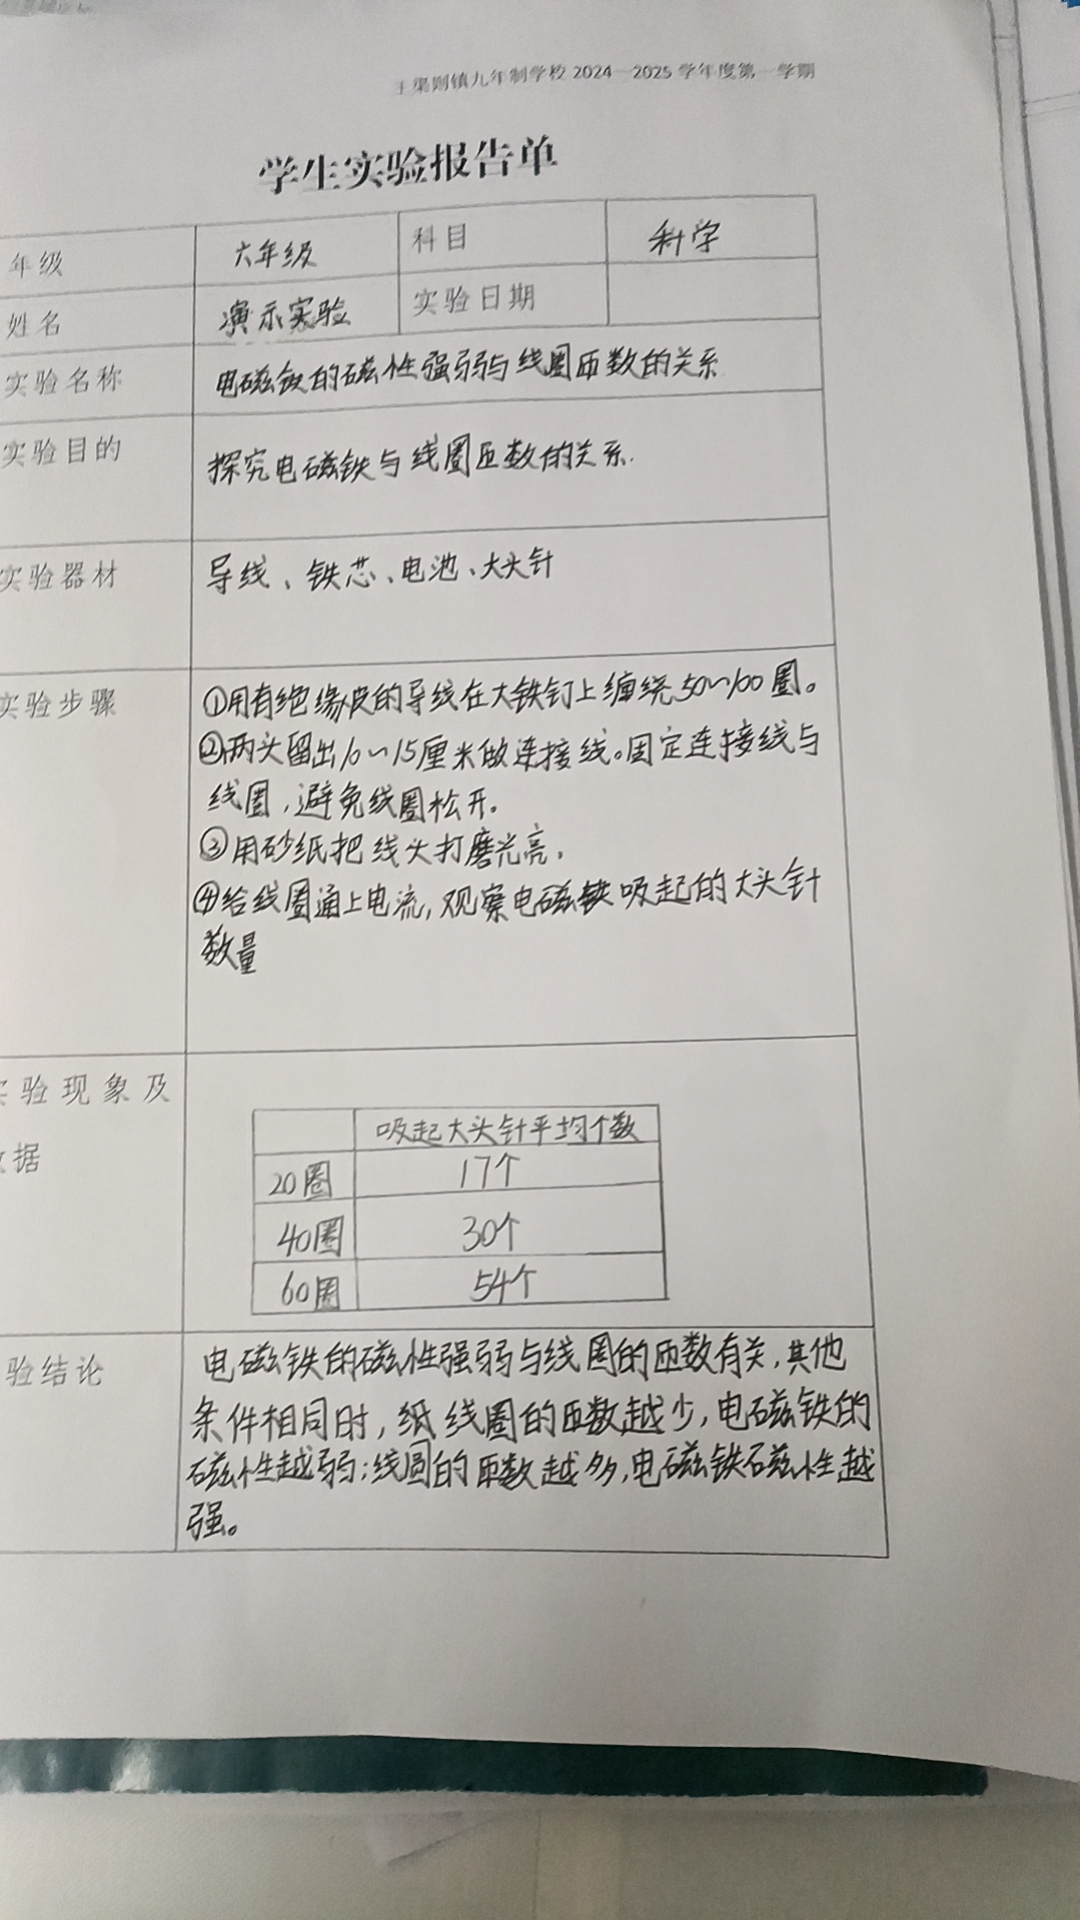 王渠则镇九年制学校 2024—2025 学年度第一学期
学生实验报告单
年级 六年级 科目 科学
姓名 演示实验 实验日期
实验名称 电磁铁的磁性强弱与线圈匝数的关系
实验目的 探究电磁铁与线圈匝数的关系.
实验器材 导线、铁芯、电池、大头针
实验步骤 ①用有绝缘皮的导线在大铁钉上缠绕50~100圈。
②两头留出10~15厘米做连接线。固定连接线与
线圈,避免线圈松开.
③用砂纸把线头打磨光亮.
④给线圈通上电流,观察电磁铁吸起的大头针
数量
实验现象及
据
吸起大头针平均个数
20圈 17个
40圈 30个
60圈 54个
验结论 电磁铁的磁性强弱与线圈的匝数有关,其他
条件相同时,纸线圈的匝数越少,电磁铁的
磁性越弱;线圆的匝数越多,电磁铁磁性越
强。